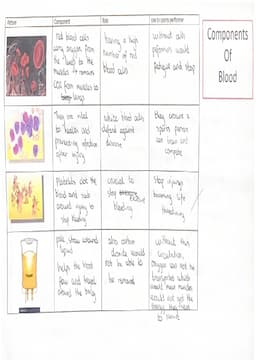 Picture
Component
Role
Use to sports performer
Components
Of
Blood
red blood cells
carry oxygen from
the lungs to the
muscles + removes
CO2 from muscles to
lungs
having a high
number of red
blood cells
without cells
performers would
fatigue and stop
They are used
to healing and
preventing infection
after injury
white blood cells
defend against
disease
they ensure a
sports person
can train and
compete
Platelets clot the
blood and
around injury to
stop bleeding
crucial to
stop
bleeding
Stop injuries
becoming life
threatening
pale, straw coloured
liquid
helps the blood
flow and travel
around the body
also carbon
dioxide would
not be able to
be removed
without this
circulation,
oxygen can not be
transported which
would mean muscles
would not get the
they need
to